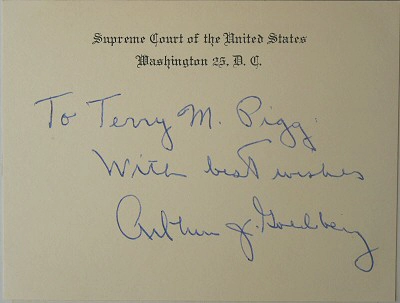 Supreme Court of the United States
Washington 25, D. C.
To Terry M. Pigg
With best wishes
Arthur J. Goldberg